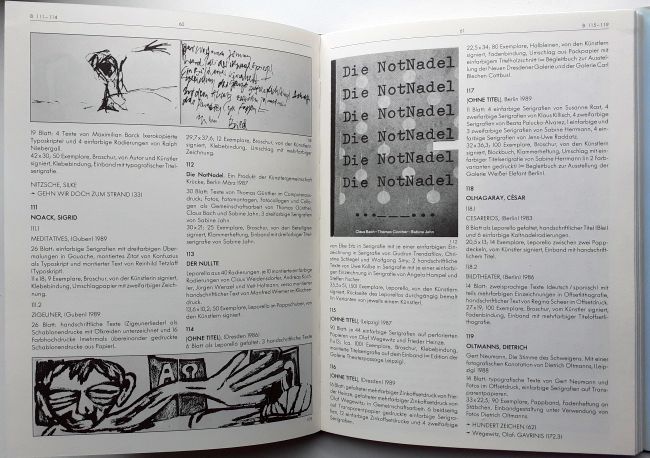 B 111—114
60
19 Blatt: 4 Texte von Maximilian Barck (xerokopierte
Typoskripte) und 4 einfarbige Radierungen von Ralph
Niebergull.
42x30, 50 Exemplare, Broschur, von Autor und Künstler
signiert, Klebebindung. Einband mit typografischer Titel-
serigrafie.
NITZSCHE, SILKE
→ GEHN WIR DOCH ZUM STRAND (33)
111
NOACK, SIGRID
111.1
MEDITATIVES, (Guben) 1989
26 Blatt: einfarbige Serigrafien mit dreifarbigen Über-
malungen in Gouache, montiertes Zitat von Konfuzius
als Typoskript und montierter Text von Reinhild Tetzlaff
(Typoskript).
11x18, 9 Exemplare, Broschur, von der Künstlerin signiert,
Klebebindung, Umschlagmappe mit zweifarbiger Zeich-
nung.
111.2
ZIGEUNER, (Guben) 1989
26 Blatt: handschriftliche Texte (Zigeunerlieder) als
Schablonendrucke mit Ölkreiden unterzeichnet und 16
farbige Hochdrucke (mehrmals übereinander gedruckte
Schablonendrucke aus Papier).
29,7x37,6, 12 Exemplare, Broschur, von der Künstlerin
signiert, Klebebindung, Umschlag mit mehrfarbiger
Zeichnung.
112
Die NotNadel. Ein Produkt der Künstlergemeinschaft
Krücke, Berlin März 1987
30 Blatt: Texte von Thomas Günther im Computeraus-
druck, Fotos, Fotomontagen, Fotocollagen und Colla-
gen als Gemeinschaftsarbeit von Thomas Günther,
Claus Bach und Sabine Jahn, 3 dreifarbige Serigrafien
von Sabine Jahn.
30x21, 25 Exemplare, Broschur, von den Beteiligten
signiert, Klammerheftung, Einband mit dreifarbiger Titel-
serigrafie von Sabine Jahn.
113
DER NULLTE
Leporello aus 40 Radierungen, je 10 montierte einfarbige
Radierungen von Claus Weidensdorfer, Andreas Küch-
ler, Jürgen Wenzel und Veit Hofmann, sowie montierter
handschriftlicher Text von Manfred Wiemer in Klischee-
druck.
13,6x10,2, 50 Exemplare, Leporello in Pappschuber, von
den Künstlern signiert.
114
[OHNE TITEL], (Dresden 1986)
6 Blatt als Leporello gefaltet: 3 handschriftliche Texte
ΑΩ
61
B 115—119
Die NotNadel
Die NotNadel
Die NotNadel
Die NotNadel
Die NotNadel
Die NotNadel
Claus Bach · Thomas Günther · Sabine Jahn
112
von Elke Erb in Serigrafie mit je einer einfarbigen Ein-
zeichnung in Serigrafie von Gudrun Trendafilov, Chri-
stine Schlegel und Wolfgang Smy; 2 handschriftliche
Texte von Uwe Kolbe in Serigrafie mit je einer einfarbi-
gen Einzeichnung in Serigrafie von Angela Hampel und
Steffen Fischer.
33,5x51, 150 Exemplare, Leporello, von den Künstlern
signiert. Rückseite des Leporellos durchgängig bemalt
(in Varianten von jeweils einem Künstler).
115
[OHNE TITEL], (Leipzig) 1987
90 Blatt: 44 einfarbige Serigrafien auf perforiertem
Papier von Olaf Wegewitz und Frieder Heinze.
11x13, (ca. 100 Exemplare), Broschur, Klebebindung,
montierte Titelserigrafie auf dem Einband (= Edition der
Galerie Theaterpassage Leipzig).
116
[OHNE TITEL], (Dresden) 1989
16 Blatt, gefaltet: mehrfarbige Zinkoffsetdrucke von Frie-
der Heinze, gefaltet mehrfarbige Zinkoffsetdrucke von
Olaf Wegewitz in Gemeinschaftsarbeit. 6 beidseitig
auf Transparentpapier gedruckte einfarbige Serigra-
fien, 12 einfarbige Zinkoffsetdrucke und 4 zweifarbige
Serigrafien.
22,5x34, 80 Exemplare, Halbleinen, von den Künstlern
signiert, Fadenbindung, Umschlag aus Packpapier mit
einfarbigem Titelholzschnitt (= Begleitbuch zur Ausstel-
lung der Neuen Dresdener Galerie und der Galerie Carl
Blechen Cottbus).
117
[OHNE TITEL], Berlin 1989
19 Blatt: 4 einfarbige Serigrafien von Susanne Rast, 4
zweifarbige Serigrafien von Klaus Killisch, 4 zweifarbige
Serigrafien von Beata Palucka-Alvarez, 1 einfarbige und
3 zweifarbige Serigrafien von Sabine Herrmann, 4 ein-
farbige Serigrafien von Jens-Uwe Raddatz.
32x36,3, 100 Exemplare, Broschur, von den Künstlern
signiert, Blockbuch, Klammerheftung, Umschlag mit einfar-
biger Titelserigrafie von Sabine Herrmann (in 2 farb-
varianten gedruckt) (= Begleitbuch zur Ausstellung der
Galerie Weißer Elefant Berlin).
118
OLHAGARAY, CÉSAR
118.1
CESAREROS, (Berlin) 1983
8 Blatt als Leporello gefaltet, handschriftlicher Titel (Blei)
und 6 einfarbige Kaltnadelradierungen.
20,5x13, 14 Exemplare, Leporello zwischen zwei Papp-
deckeln, vom Künstler signiert, Einband mit handschrift-
lichem Titel.
118.2
BILDTHEATER, (Berlin) 1986
14 Blatt: zweisprachige Texte (deutsch / spanisch) mit
teils mehrfarbigen Einzeichnungen in Offsetlithografie,
handschriftlicher Text von Regina Scheer in Offsetdruck.
27x19, 100 Exemplare, Broschur, vom Künstler signiert,
Fadenbindung, Einband mit mehrfarbiger Titeloffsetli-
thografie.
119
OLTMANNS, DIETRICH
Gert Neumann, Die Stimme des Schweigens. Mit einer
fotografischen Konotation von Dietrich Oltmanns, (Leip-
zig) 1988
14 Blatt: typografische Texte von Gert Neumann und
Fotos im Offsetdruck, einfarbige Serigrafien auf Trans-
parentpapieren.
33x22,5, 90 Exemplare, Pappband, Fadenheftung an
Stäbchen, Einbandgestaltung unter Verwendung von
Fotos Dietrich Oltmanns.
→ HUNDERT ZEICHEN (62)
→ Wegewitz, Olaf: GAVRINIS (172.3)